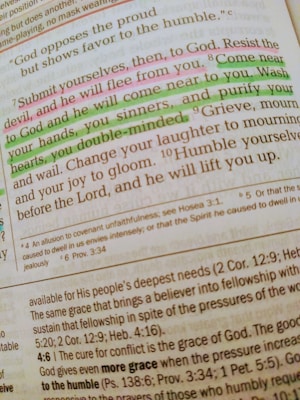 position
ing but does another.
me-playing, no mask wearing
"God opposes the proud
but shows favor to the humble."c
7Submit yourselves, then, to God. Resist the
devil, and he will flee from you. 8Come near
to God and he will come near to you. Wash
your hands, you sinners, and purify your
hearts, you double-minded. 9Grieve, mourn
and wail. Change your laughter to mourning
and your joy to gloom. 10Humble yourselve
before the Lord, and he will lift you up.
a 4 An allusion to covenant unfaithfulness; see Hosea 3:1. b 5 Or that the
caused to dwell in us envies intensely; or that the Spirit he caused to dwell in u
jealously c 6 Prov. 3:34
available for His people's deepest needs (2 Cor. 12:9; Heb
The same grace that brings a believer into fellowship with
sustain that fellowship in spite of the pressures of the wo
5:20; 2 Cor. 12:9; Heb. 4:16).
4:6 | The cure for conflict is the grace of God. The good
God gives even more grace when the pressure increas
to the humble (Ps. 138:6; Prov. 3:34; 1 Pet. 5:5). Go
responsive to the prayers of those who humbly reque